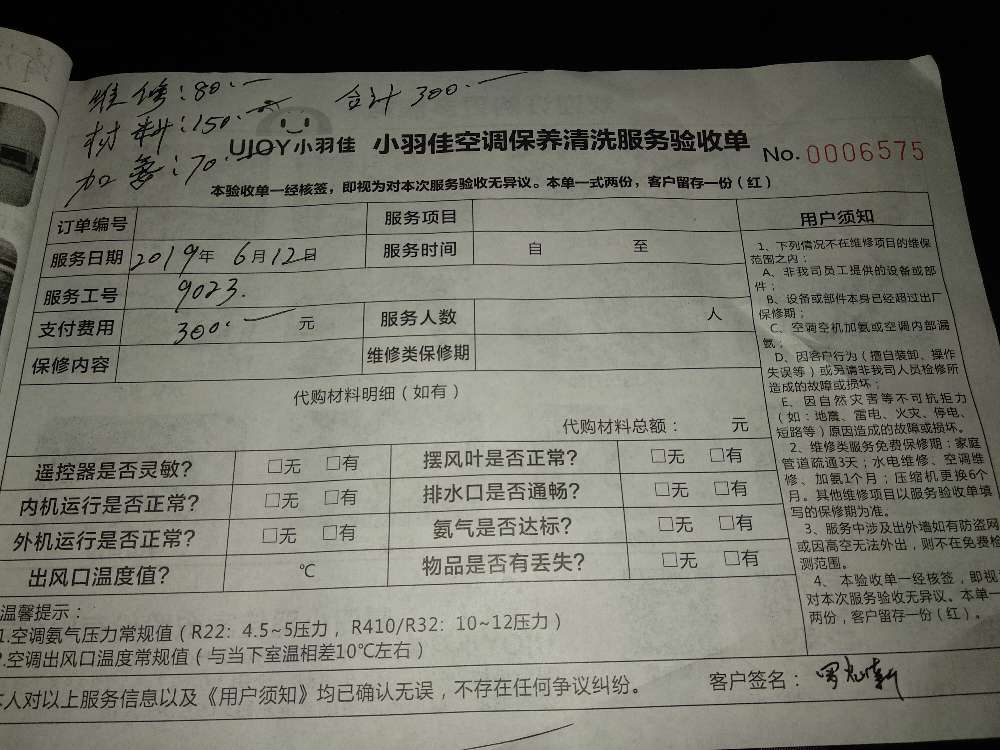 维修:80.
合计300.
材料:150.
加氨:70.
UJOY小羽佳
小羽佳空调保养清洗服务验收单
No. 0006575
本验收单一经核签，即视为对本次服务验收无异议。本单一式两份，客户留存一份（红）
订单编号
服务项目
服务日期 2019年 6月12日
服务时间 自 至
服务工号 9023.
支付费用 300. 元
服务人数 人
保修内容
维修类保修期
代购材料明细（如有）
代购材料总额： 元
遥控器是否灵敏? □无 □有
摆风叶是否正常? □无 □有
内机运行是否正常? □无 □有
排水口是否通畅? □无 □有
外机运行是否正常? □无 □有
氨气是否达标? □无 □有
出风口温度值? ℃
物品是否有丢失? □无 □有
用户须知
1、下列情况不在维修项目的维保
范围之内：
A、非我司员工提供的设备或部
件；
B、设备或部件本身已经超过出厂
保修期；
C、空调空机加氨或空调内部漏
氨；
D、因客户行为（擅自装卸、操作
失误等）或另请非我司人员检修所
造成的故障或损坏；
E、因自然灾害等不可抗拒力
（如：地震、雷电、火灾、停电、
短路等）原因造成的故障或损坏。
2、维修类服务免费保修期：家庭
管道疏通3天；水电维修、空调维
修、加氨1个月；压缩机更换6个
月。其他维修项目以服务验收单填
写的保修期为准。
3、服务中涉及出外墙如有防盗网
或因高空无法外出，则不在免费检
测范围。
4、本验收单一经核签，即视
对本次服务验收无异议。本单一
两份，客户留存一份（红）。
温馨提示：
1.空调氨气压力常规值（R22：4.5~5压力，R410/R32：10~12压力）
2.空调出风口温度常规值（与当下室温相差10℃左右）
本人对以上服务信息以及《用户须知》均已确认无误，不存在任何争议纠纷。
客户签名：